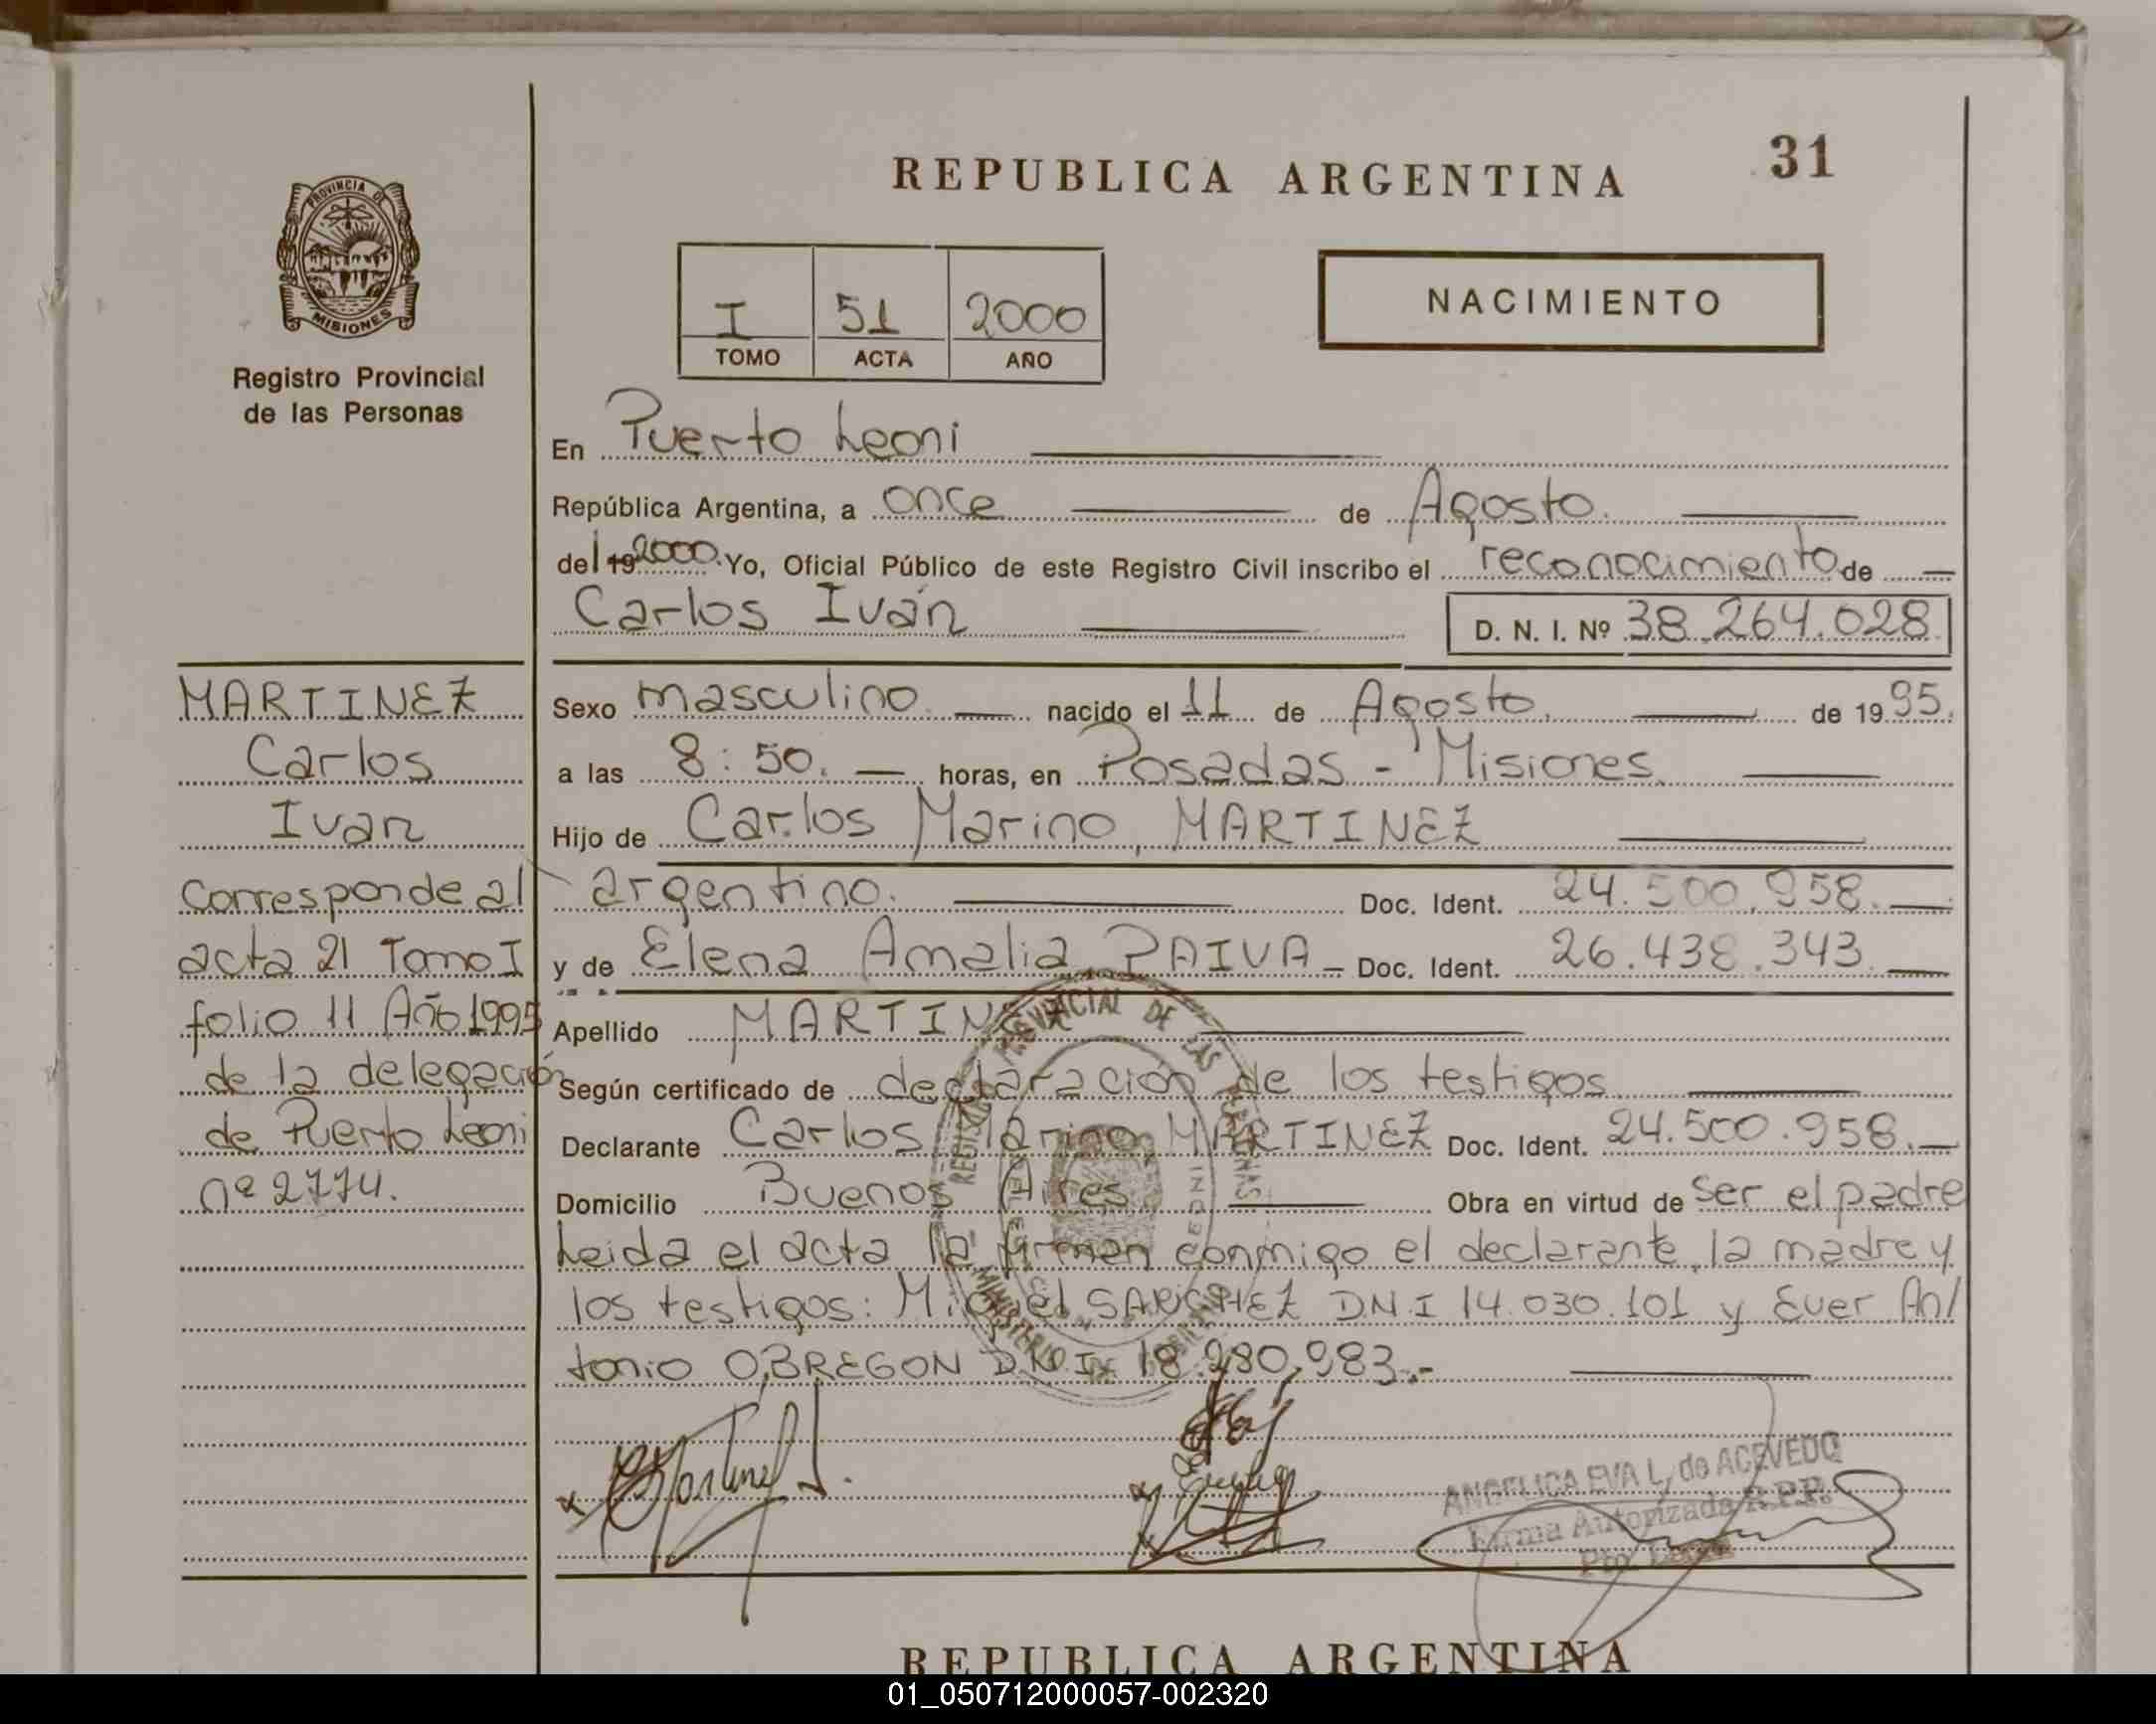 REPUBLICA ARGENTINA
31
PROVINCIA DE
MISIONES
Registro Provincial
de las Personas
I 51 2000
TOMO ACTA AÑO
NACIMIENTO
En Puerto Leoni
República Argentina, a once de Agosto.
del 19 2000. Yo, Oficial Público de este Registro Civil inscribo el reconocimiento de
Carlos Iván D. N. I. Nº 38.264.028
MARTINEZ
Carlos
Ivan
Corresponde al
acta 21 Tomo I
folio 11 Año 1995
de la delegación
de Puerto Leoni
nº 2774.
Sexo masculino. nacido el 11 de Agosto. de 1995.
a las 8:50. horas, en Posadas - Misiones.
Hijo de Carlos Marino, MARTINEZ
argentino. Doc. Ident. 24.500.958.
y de Elena Amalia PAIVA Doc. Ident. 26.438.343.
Apellido MARTINEZ
Según certificado de declaración de los testigos
Declarante Carlos Marino MARTINEZ Doc. Ident. 24.500.958.
Domicilio Buenos Aires Obra en virtud de ser el padre
Leida el acta la firman conmigo el declarante, la madre y
los testigos: Miguel SANCHEZ D.N.I 14.030.101 y Ever An/
tonio OBREGON D.N.I. 18.280.983.-
ANGELICA EVA L. de ACEVEDO
Firma Autorizada R.P.P.
Pto. Leoni
REPUBLICA ARGENTINA
01_050712000057-002320